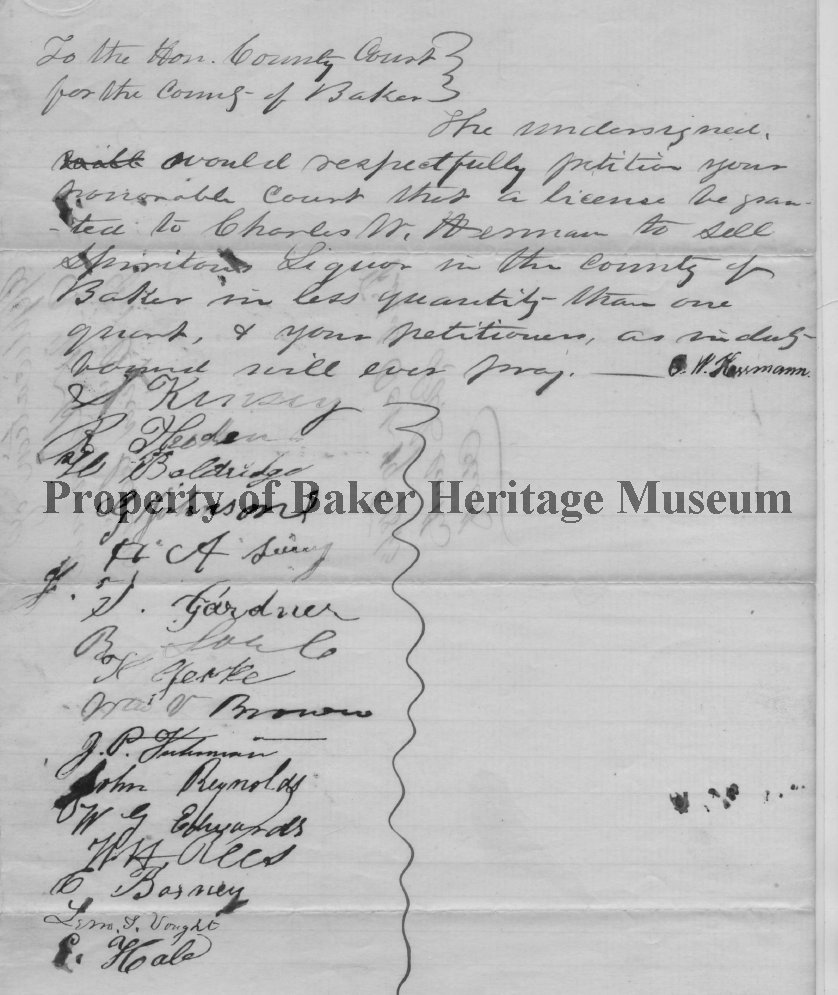 To the Hon. County Court
for the County of Baker
The undersigned,
would respectfully petition your
honorable court that a license be gran-
-ted to Charles W. Herman to sell
Spiritous Liquor in the county of
Baker in less quantity than one
quart, & your petitioners, as in duty
bound will ever pray. — C. W. Herrmann.
Kinsey
R
W Baldridge
Property of Baker Heritage Museum
H A
Gardner
B
Gerke
Wm V Brown
J. P.
John Reynolds
W G Edwards
W. H.
C Barney
Lem. S. Vought
E. Hale